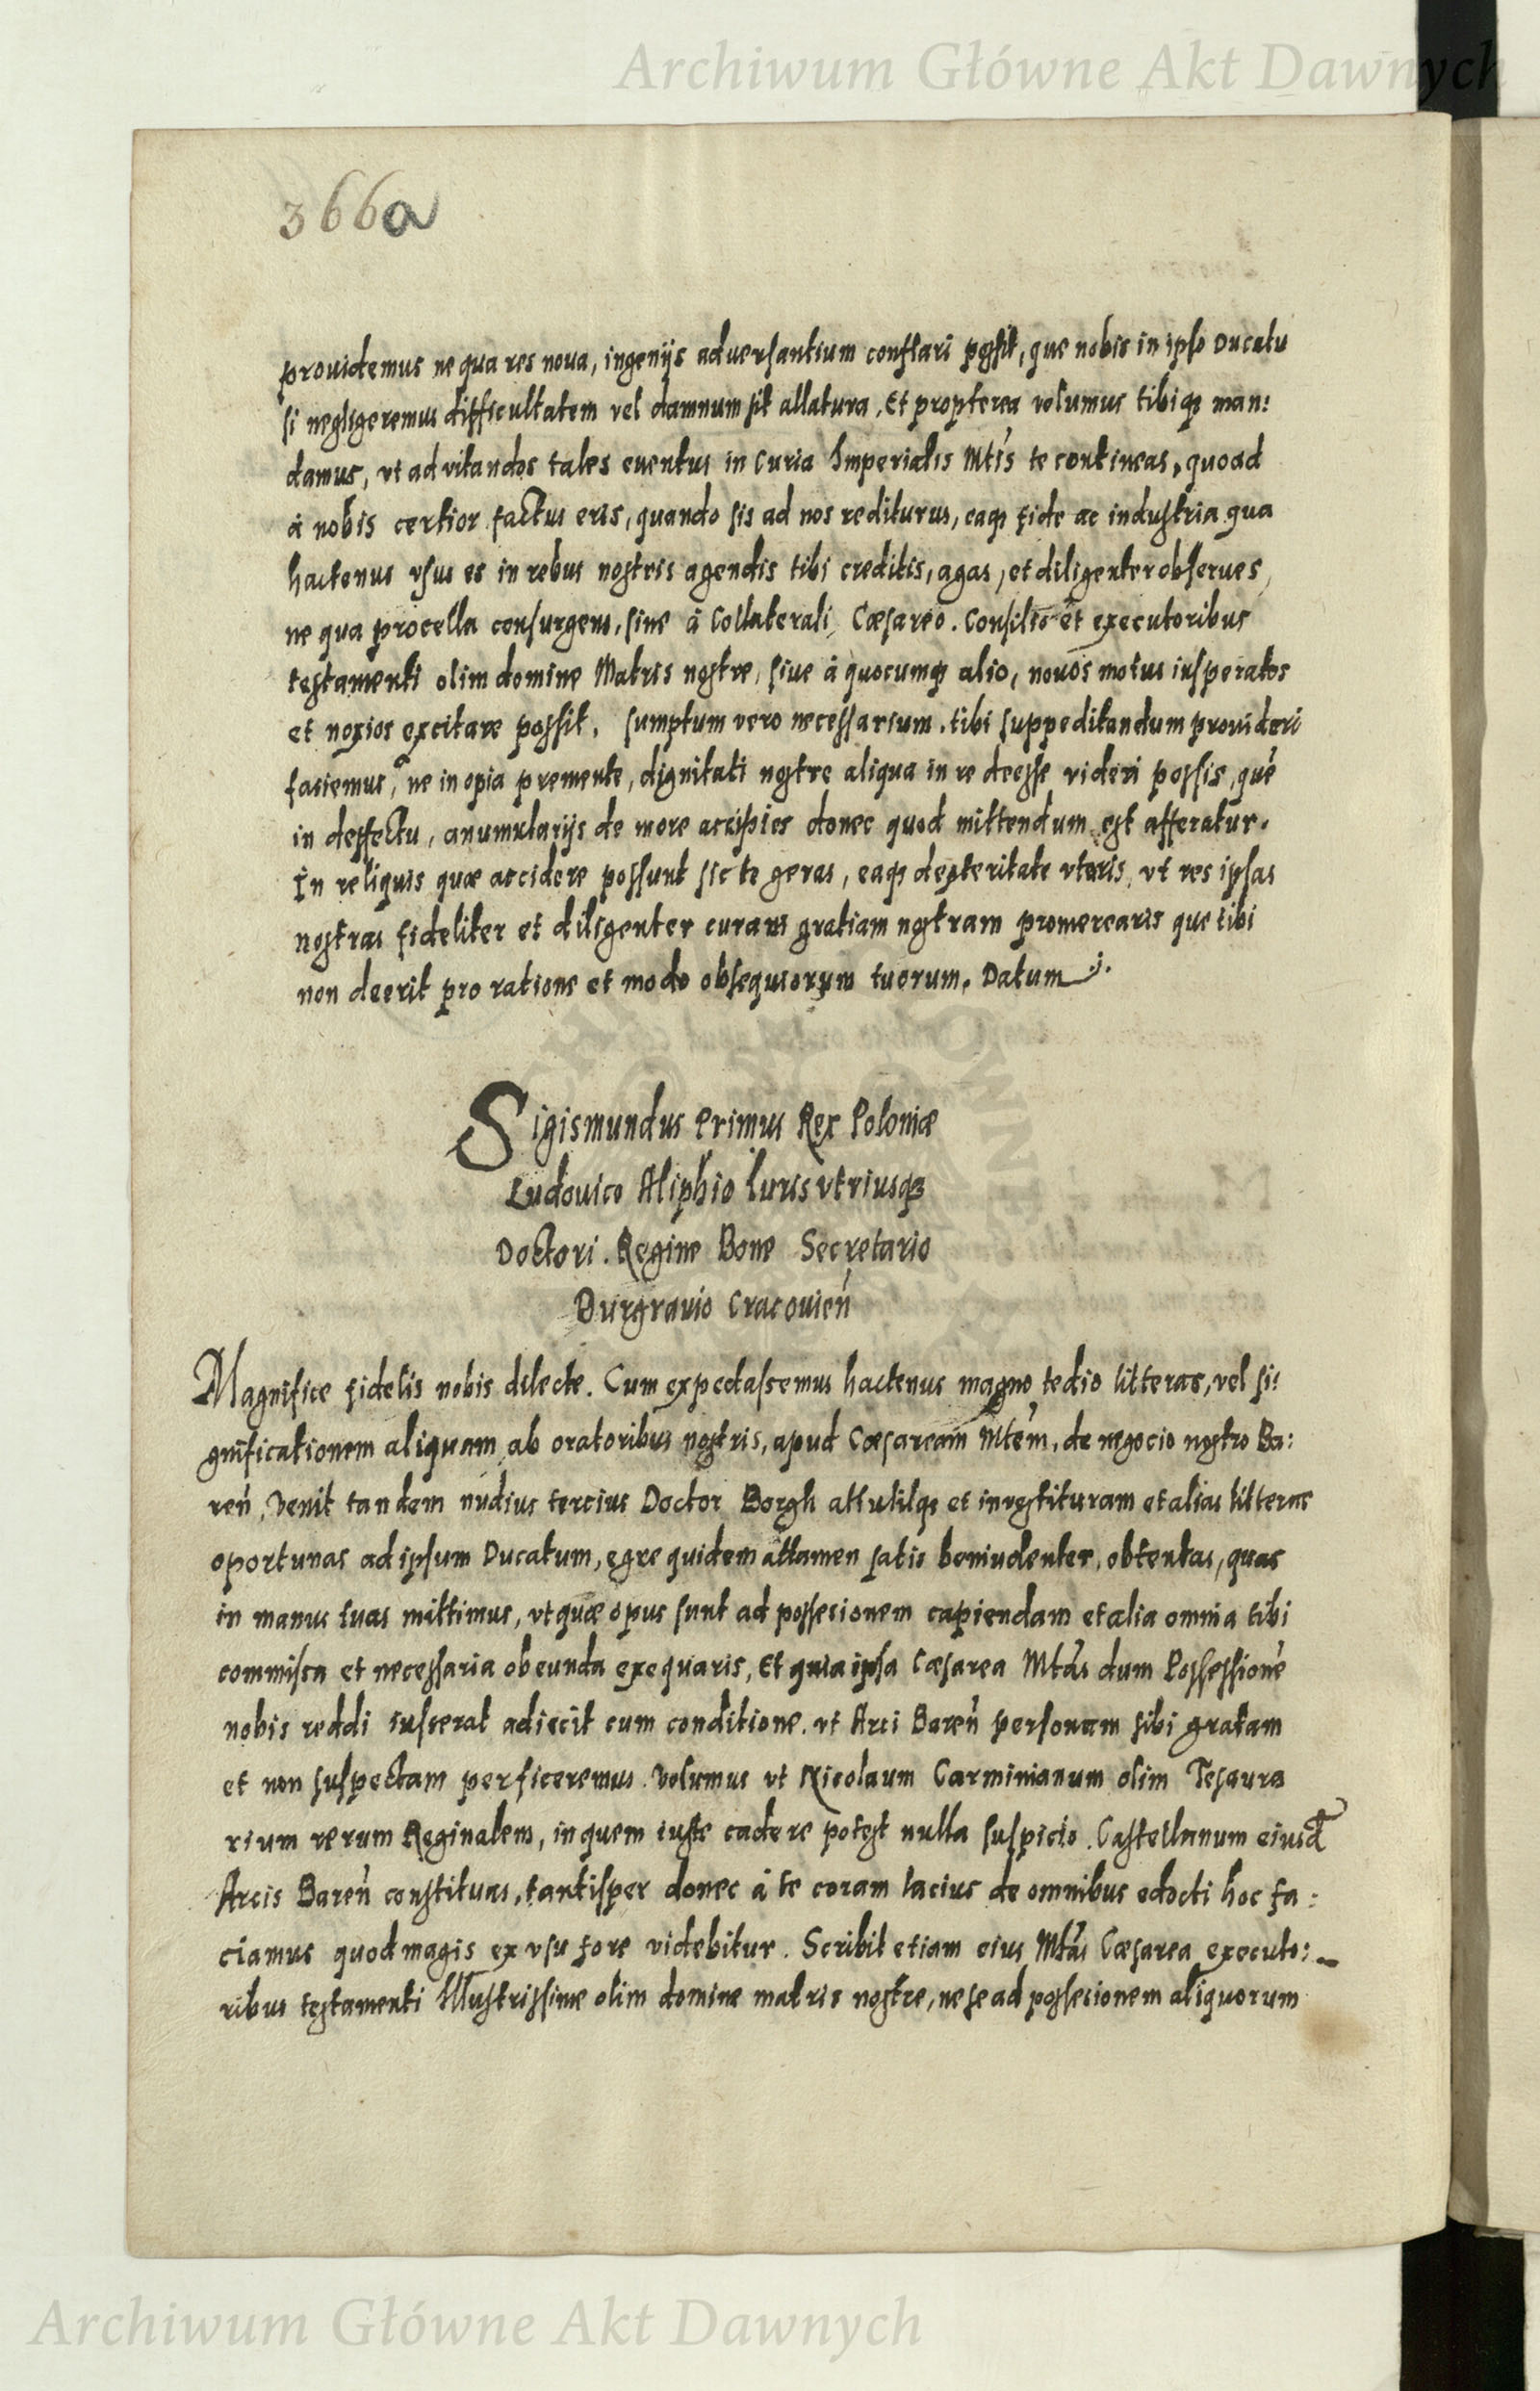 Archiwum Główne Akt Dawnych
366a
prouidemus ne qua res noua, ingenijs aduersantium conflari possit, que nobis in ipso Ducatu
si negligeremus difficultatem vel damnum sit allatura, Et propterea volumus tibiq₃ man:
damus, vt ad vitandos tales euentus in Curia Imperialis Mtis te contineas, quoad
à nobis certior factus eris, quando sis ad nos rediturus, eaq₃ fide ac industria qua
hactenus vsus es in rebus nostris agendis tibi creditis, agas, et diligenter obserues,
ne qua procella consurgens, siue à Collaterali Cæsareo. Consilio et executoribus
testamenti olim domine Matris nostre, siue à quocumq₃ alio, nouos motus insperatos
et noxios excitare possit. Sumptum vero necessarium. tibi suppeditandum prouideri
faciemus, ne inopia premente, dignitati nostre aliqua in re deesse videri possis, que
in deffectu, a numularijs de more accipies donec quod mittendum est afferatur.
In reliquis quæ accidere possunt sic te geras, eaq₃ dexteritate vtaris, vt res ipsas
nostras fideliter et diligenter curans gratiam nostram promerearis que tibi
non deerit pro ratione et modo obsequiorum tuorum. Datum
Sigismundus Primus Rex Poloniæ
Ludouico Aliphio Iuris vtriusq₃
Doctori. Regine Bone Secretario
Burgrauio Cracouieñ
Magnifice fidelis nobis dilecte. Cum expectassemus hactenus magno tedio litteras, vel si:
gnificationem aliquam ab oratoribus nostris, apud Cæsaream Mtem, de negocio nostro Ba:
reñ, Venit tandem nudius tercius Doctor Borgh attulitq₃ et inuestituram et alias litteras
oportunas ad ipsum Ducatum, egre quidem attamen satis beniuolenter, obtentas, quas
in manus tuas mittimus, vt quæ opus sunt ad possesionem capiendam et alia omnia tibi
commissa et necessaria obeunda exequaris, Et quia ipsa Cæsarea Mtas dum Possessionē
nobis reddi iusserat adiecit cum conditione. vt Arci Bareñ personam sibi gratam
et non suspectam perficeremus. Volumus vt Nicolaum Carminianum olim Tesaura
rium rerum Reginalem, in quem iuste cadere potest nulla suspicio. Castellanum eiusd
Arcis Bareñ constituas, tantisper donec à te coram lacius de omnibus edocti hoc fa:
ciamus quod magis ex vsu fore videbitur. Scribit etiam eius Mtas Cæsarea executo:
ribus testamenti Illustrissime olim domine matris nostre, ne se ad possesionem aliquorum
Archiwum Główne Akt Dawnych